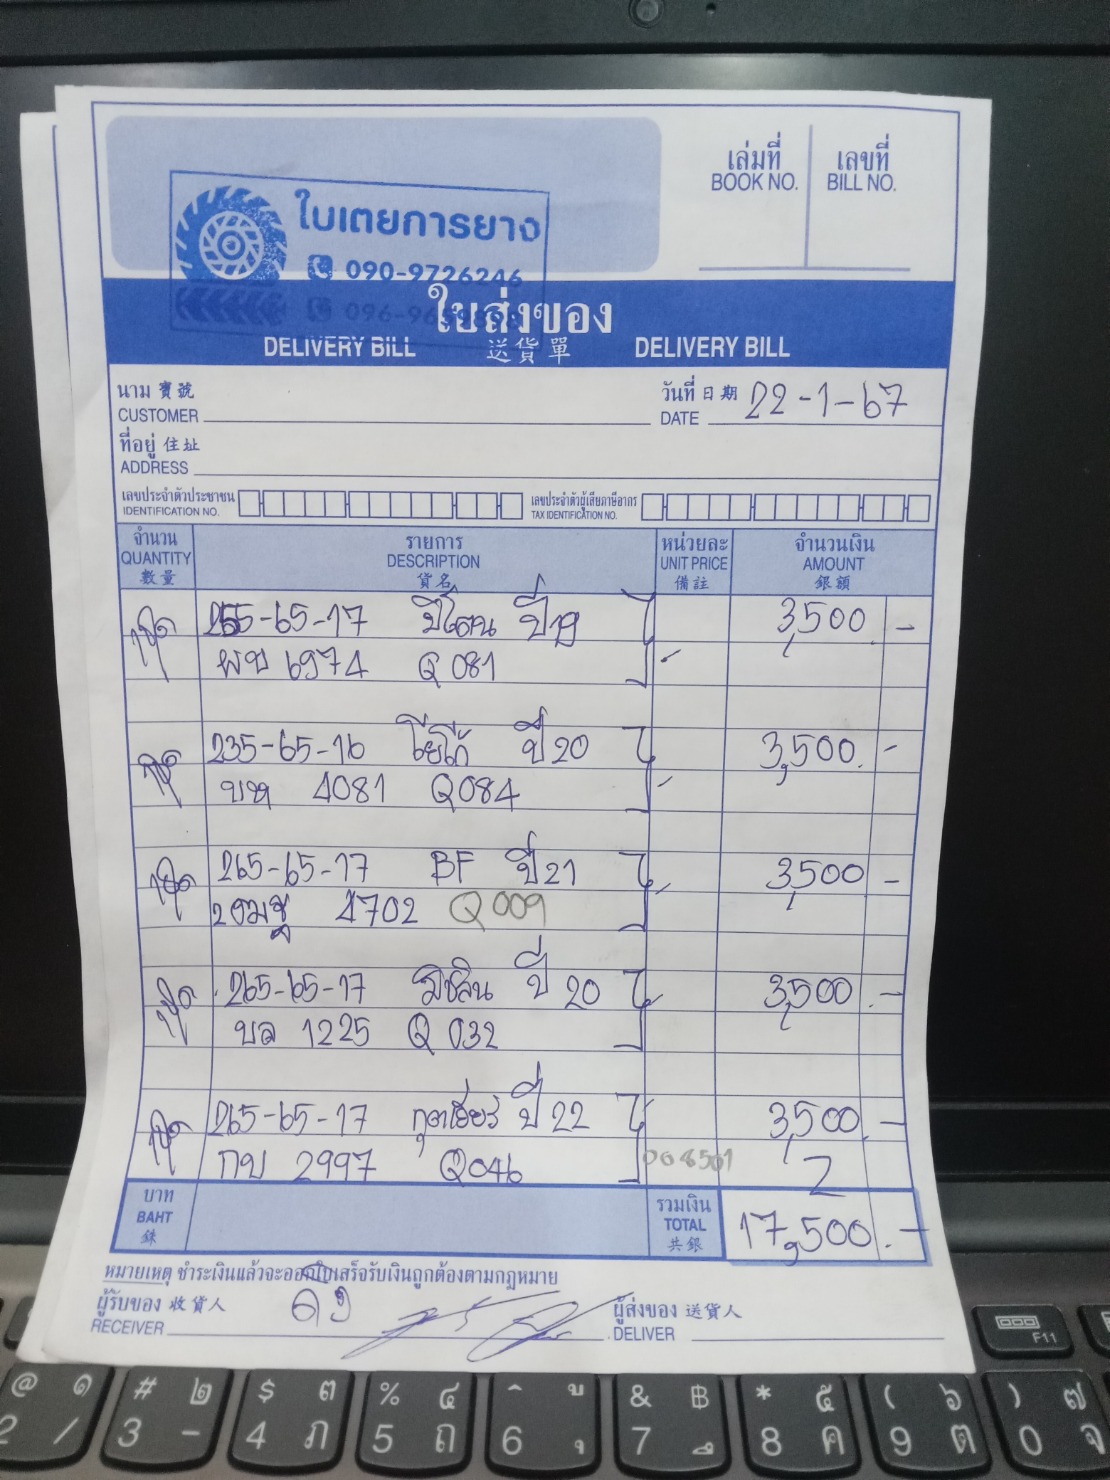 เล่มที่ เลขที่
BOOK NO. BILL NO.
ใบเตยการยาง
090-9726246
ใบส่งของ
DELIVERY BILL 送貨單 DELIVERY BILL
นาม 寶號 วันที่ 日期 22-1-67
CUSTOMER DATE
ที่อยู่ 住址
ADDRESS
เลขประจำตัวประชาชน เลขประจำตัวผู้เสียภาษีอากร
IDENTIFICATION NO. TAX IDENTIFICATION NO.
จำนวน รายการ หน่วยละ จำนวนเงิน
QUANTITY DESCRIPTION UNIT PRICE AMOUNT
數量 貨名 備註 銀額
265-65-17 ปี 19 3,500 -
6974 Q 081
235-65-16 โยโก้ ปี 20 3,500.-
4081 Q084
265-65-17 BF ปี 21 3,500 -
4702 Q 009
265-65-17 มิชลิน ปี 20 3,500.-
บล 1225 Q 032
265-65-17 ปี 22 3,500.-
กบ 2997 Q046
บาท รวมเงิน
BAHT TOTAL 17,500.-
銖 共銀
หมายเหตุ ชำระเงินแล้วจะออกใบเสร็จรับเงินถูกต้องตามกฎหมาย
ผู้รับของ 收貨人 ผู้ส่งของ 送貨人
RECEIVER DELIVER
F11
@ ๑ # ๒ $ ๓ % ๔ ^ ู & ฿ * ๕ ( ๖ ) ๗
2 / 3 - 4 ภ 5 ถ 6 ุ 7 ึ 8 ค 9 ต 0 จ